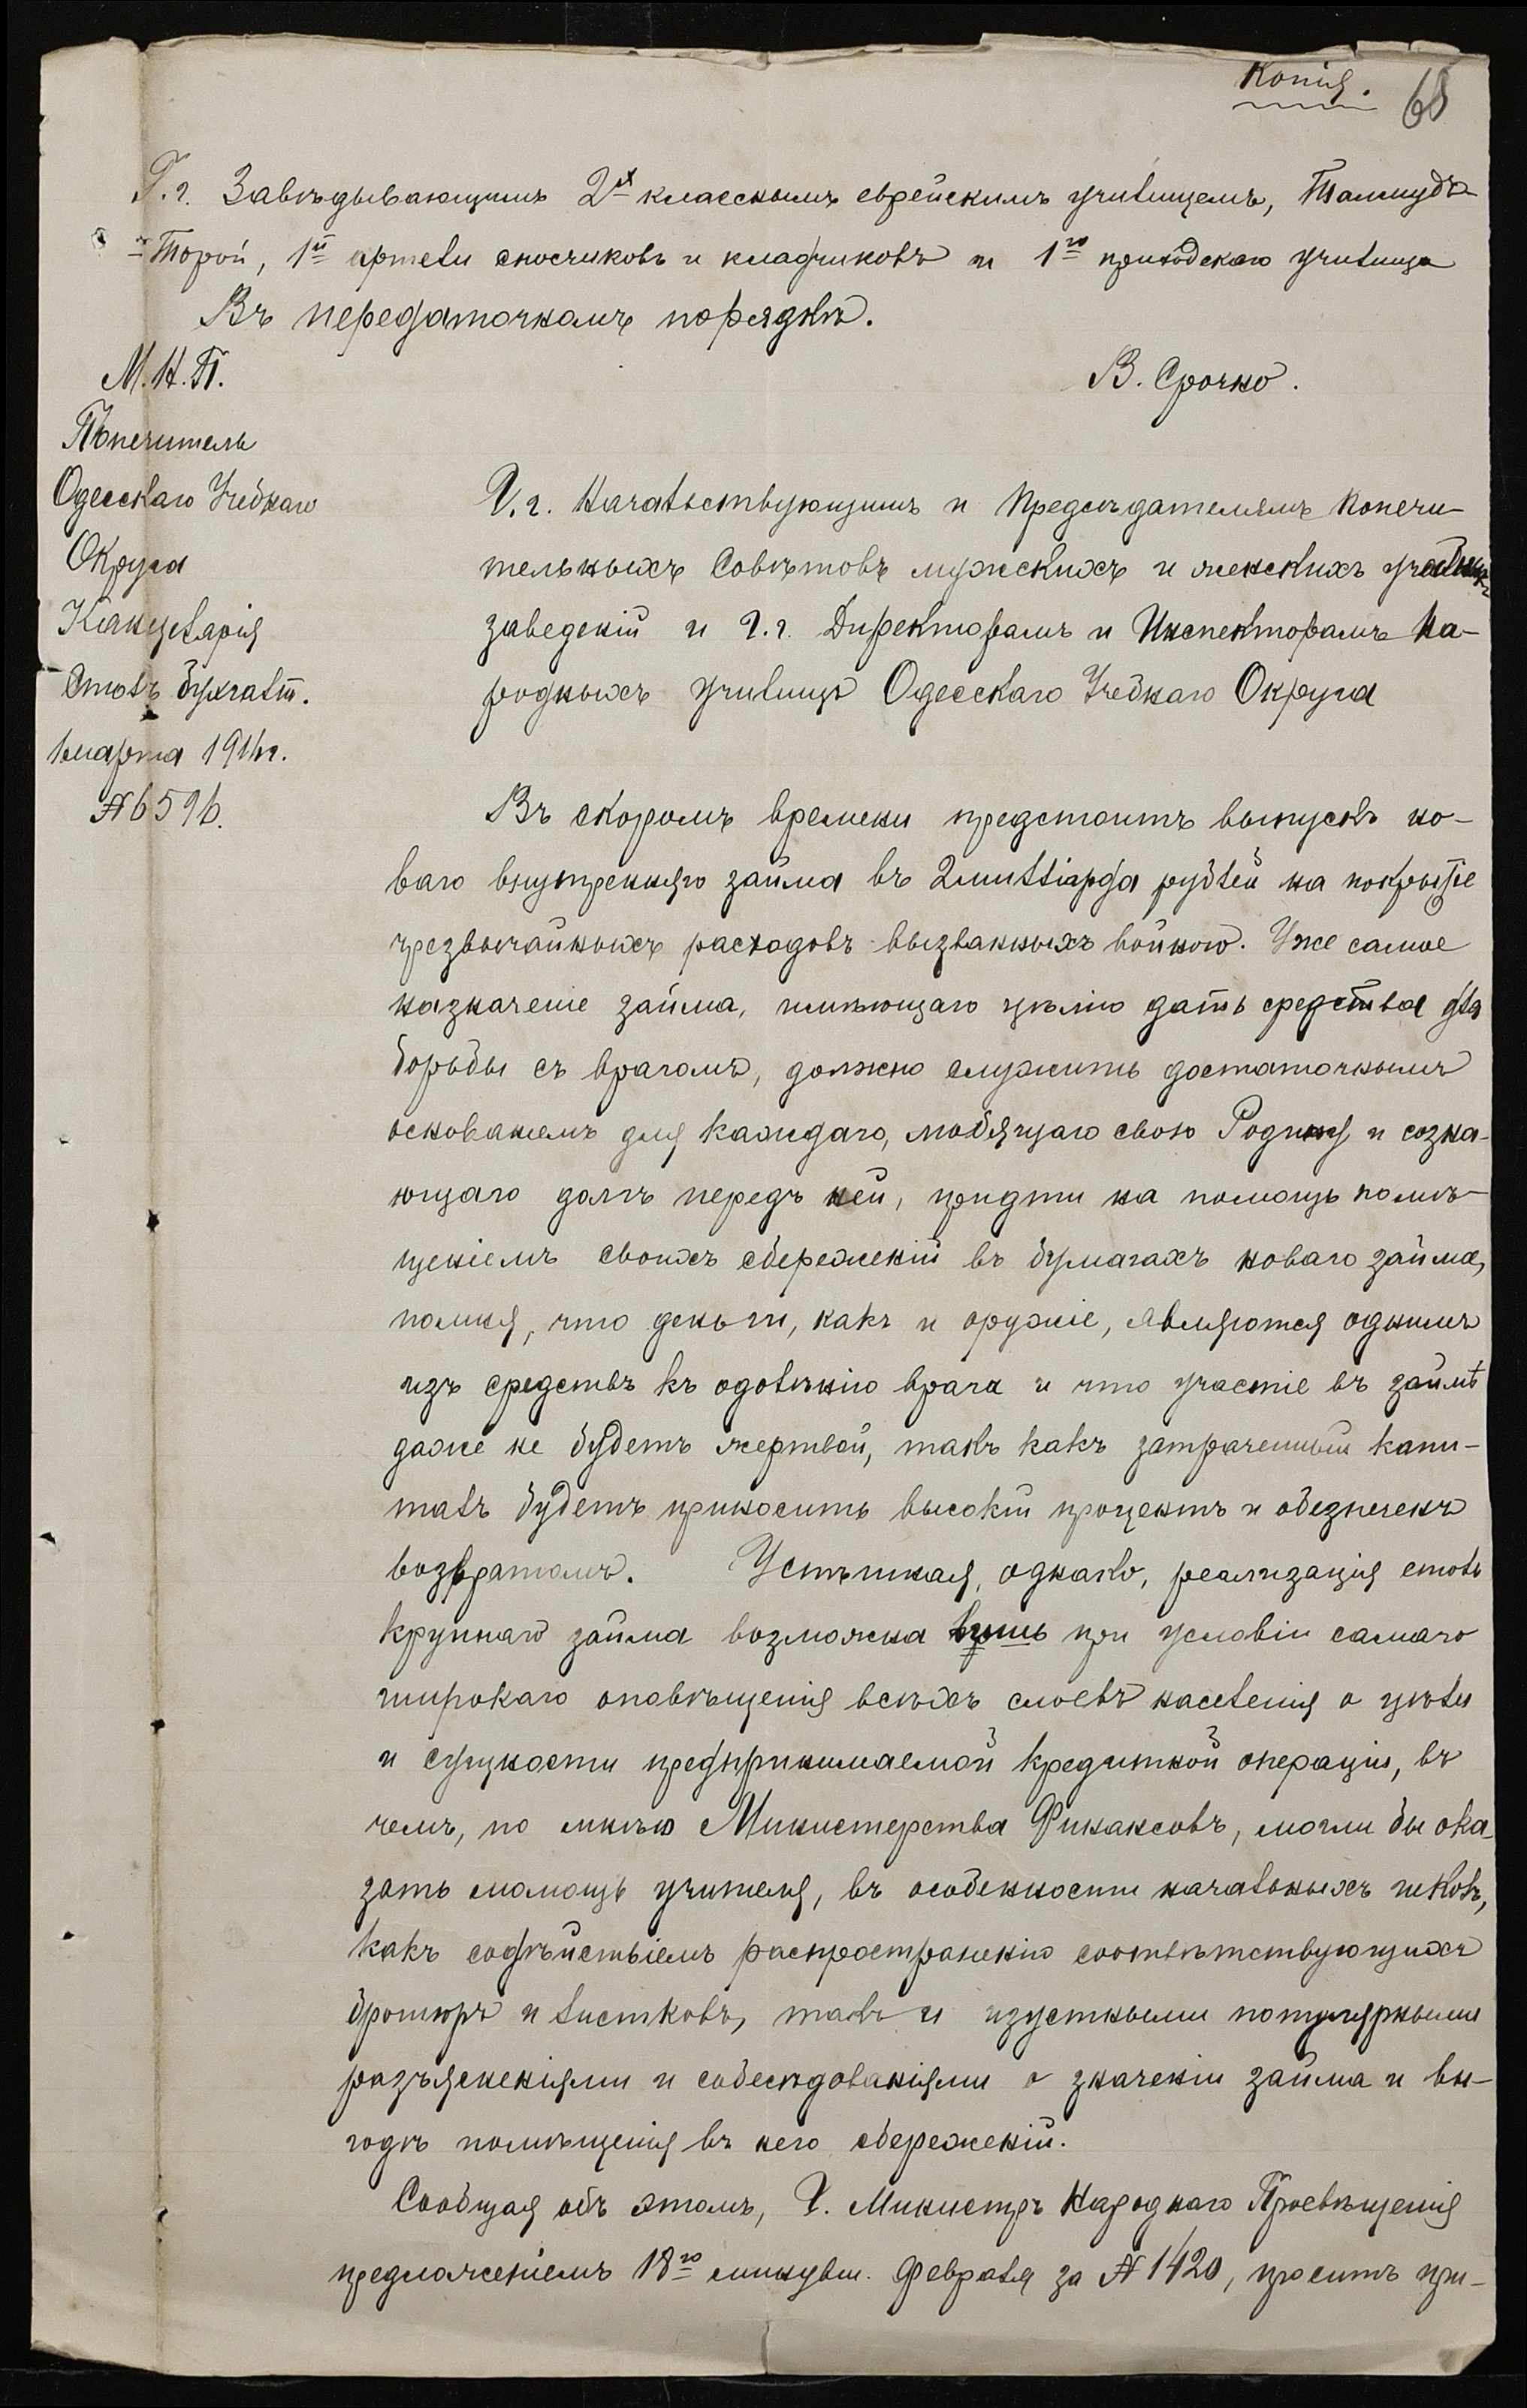 Копія. 68
Г.г. Завѣдывающимъ 2х класснымъ еврейскимъ училищемъ, Талмудъ
-Торой, 1й артели сносчиковъ и кладчиковъ и 1го приходскаго училища
Въ передаточномъ порядкѣ.
М.Н.П.
В. Срочно.
Попечитель
Одесскаго Учебнаго
Округа
Канцелярія
Столъ бухгалт.
марта 191 г.
№ 6596.
Г.г. Начальствующимъ и Предсѣдателямъ Попечи-
тельныхъ Совѣтовъ мужскихъ и женскихъ учебныхъ
заведеній и г.г. Директорамъ и Инспекторамъ На-
родныхъ училищъ Одесскаго Учебнаго Округа
Въ скоромъ времени предстоитъ выпускъ но-
ваго внутренняго займа въ 2 милліарда рублей на покрытіе
чрезвычайныхъ расходовъ вызванныхъ войною. Уже самое
назначеніе займа, имѣющаго цѣлію дать средства для
борьбы съ врагомъ, должно служить достаточнымъ
основаніемъ для каждаго, любящаго свою Родину и созна-
ющаго долгъ передъ ней, придти на помощь помѣ-
щеніемъ своихъ сбереженій въ бумагахъ новаго займа,
помня, что деньги, какъ и оружіе, являются однимъ
изъ средствъ къ одолѣнію врага и что участіе въ займѣ
даже не будетъ жертвой, такъ какъ затраченный капи-
талъ будетъ приносить высокій процентъ и обезпеченъ
возвратомъ. Успѣшная, однако, реализація столь
крупнаго займа возможна лишь при условіи самаго
широкаго оповѣщенія всѣхъ слоевъ населенія о цѣли
и сущности предпринимаемой кредитной операціи, въ
чемъ, по мнѣню Министерства Финансовъ, могли бы ока-
зать помощь учителя, въ особенности начальныхъ школъ,
какъ содѣйствіемъ распространенію соотвѣтствующихъ
брошюръ и листковъ, такъ и изустными популярными
разъясненіями и собесѣдованіями о значеніи займа и вы-
годѣ помѣщенія въ него сбереженій.
Сообщая объ этомъ, Г. Министръ Народнаго Просвѣщенія
предложеніемъ 18го минувш. февраля за № 1420, проситъ при-